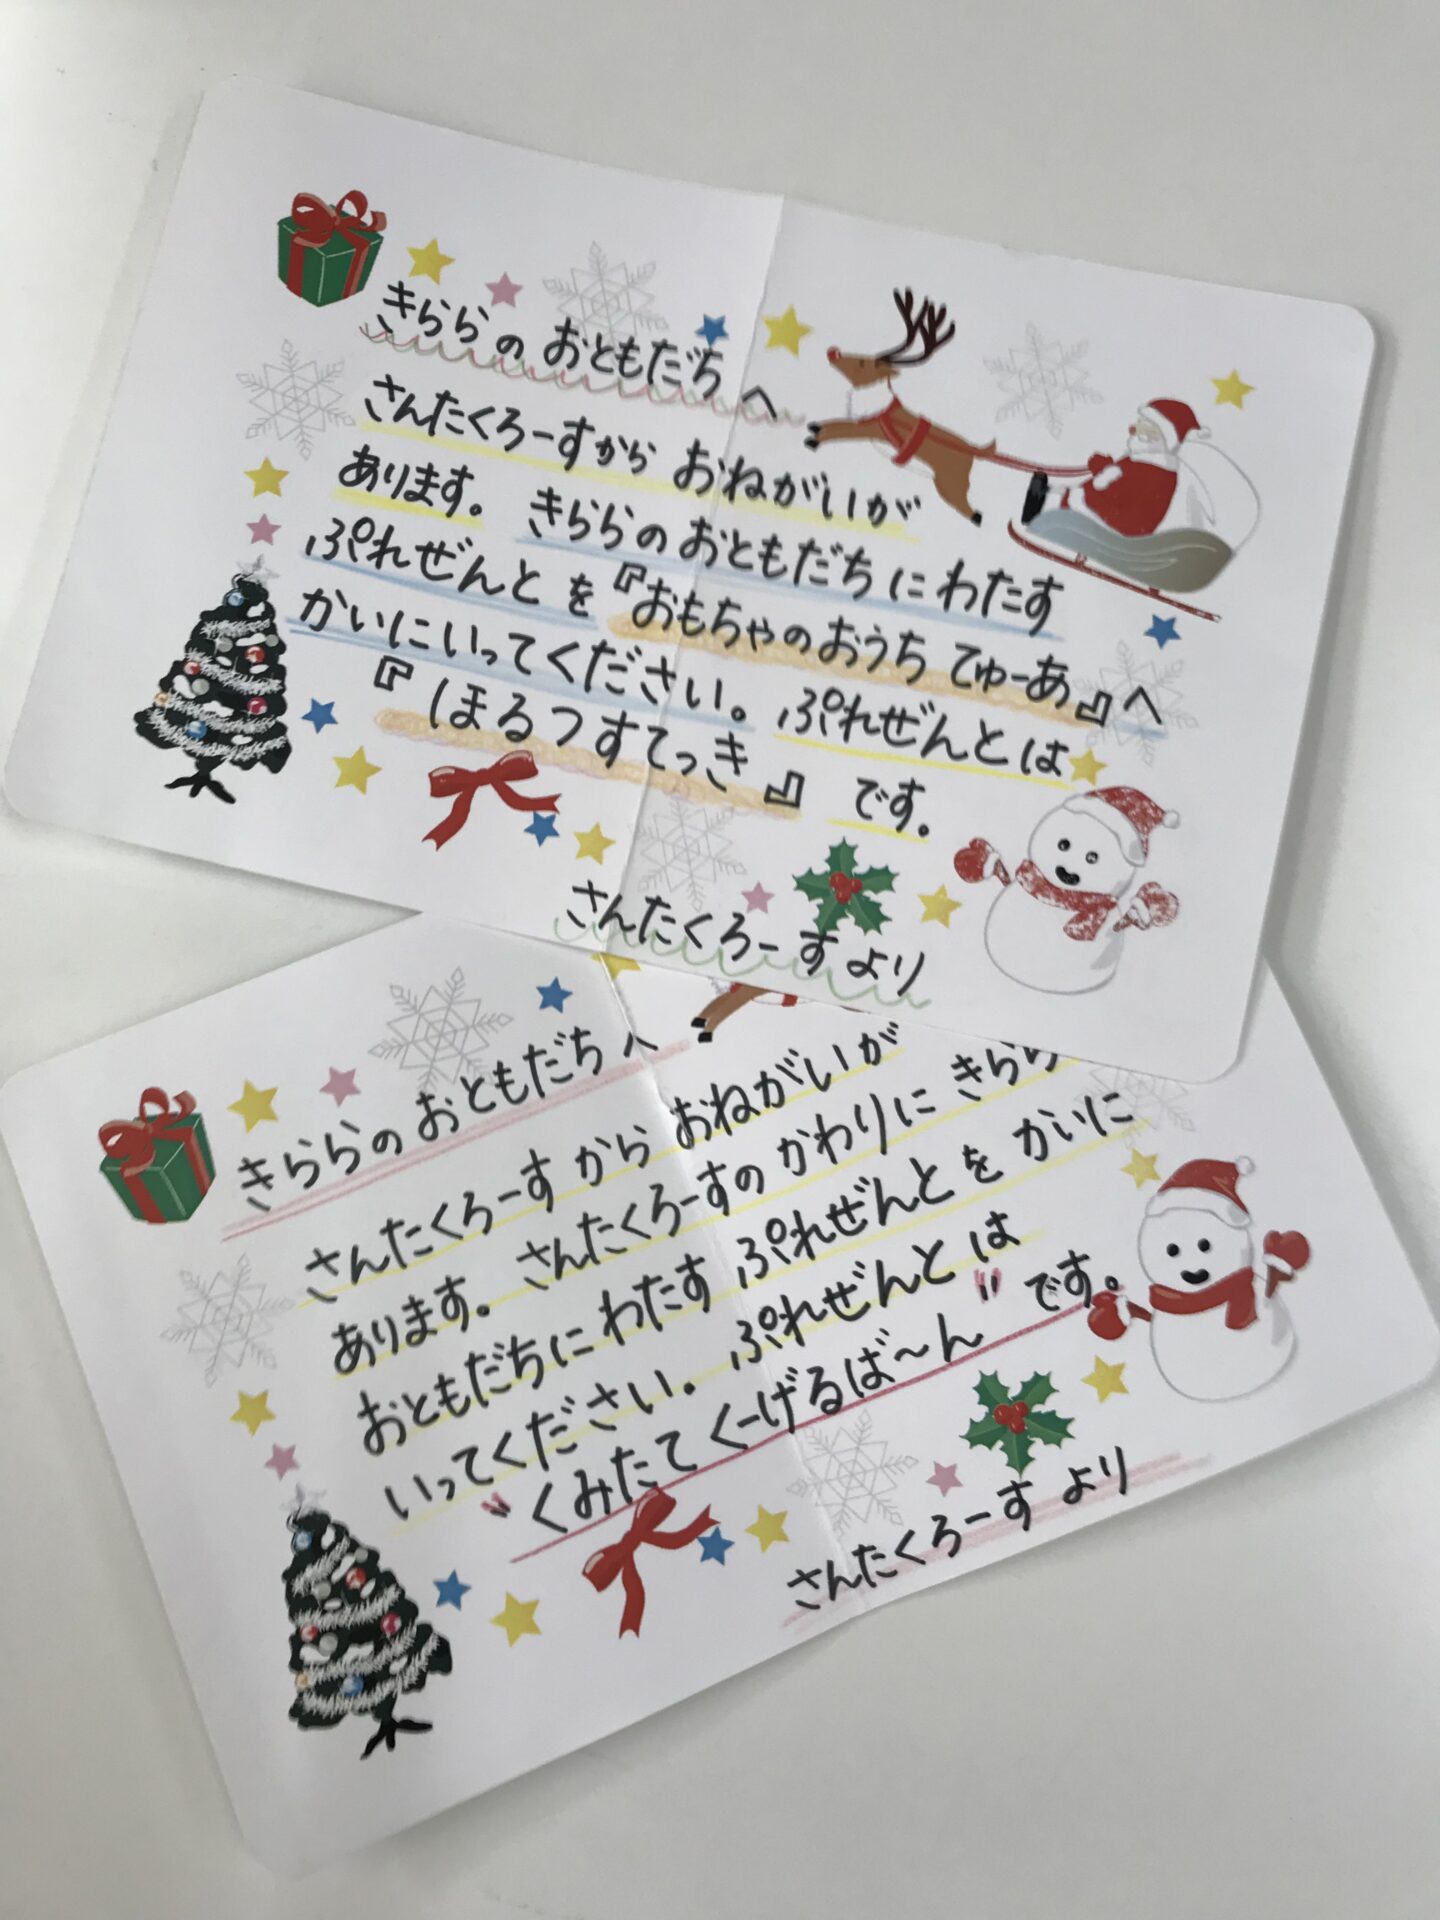 きららの おともだち へ
さんたくろーすから おねがいが
あります。 きららの おともだち に わたす
ぷれぜんと を 『おもちゃのおうち てゅーあ』へ
かいにいってください。 ぷれぜんとは
『ほるつすてっき』 です。
さんたくろーす より
きららの おともだち へ
さんたくろーす から おねがいが
あります。 さんたくろーすの かわりに きらら
おともだちに わたす ぷれぜんと を かいに
いってください。 ぷれぜんと は
"くみたて くーげるば〜ん" です。
さんたくろーす より